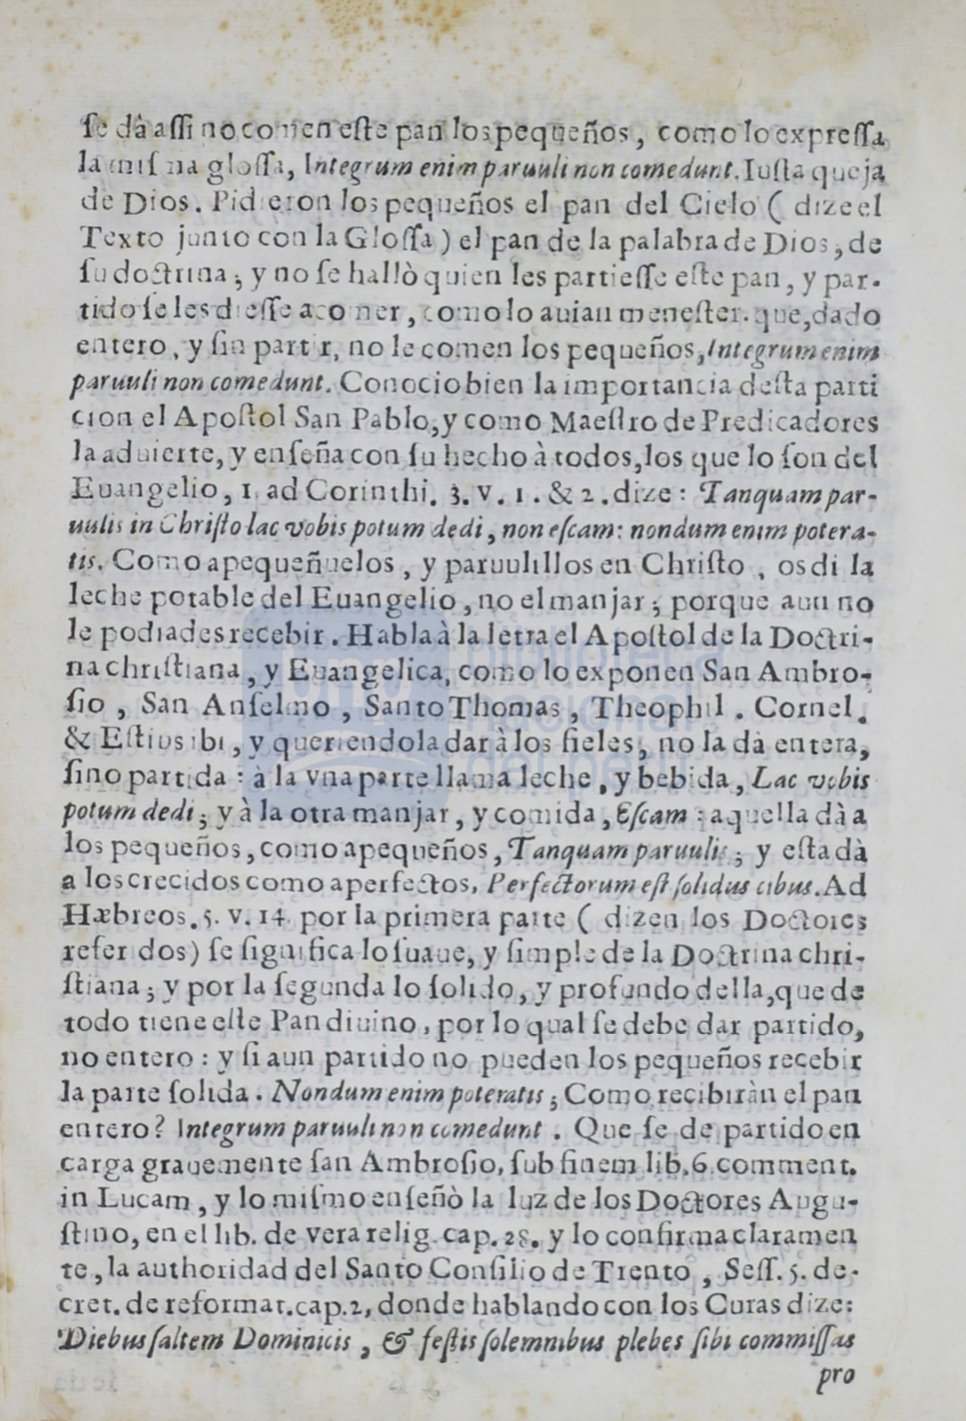 ſe dà aſſi no comen eſte pan los pequeños, como lo expreſſa
la miſma gloſſa, Integrum enim paruuli non comedunt. Iuſta queja
de Dios. Pidieron los pequeños el pan del Cielo ( dize el
Texto junto con la Gloſſa ) el pan de la palabra de Dios, de
ſu doctrina; y no ſe hallò quien les partieſſe eſte pan, y par-
tido ſe les dieſſe a comer, como lo auian meneſter. que, dado
entero, y ſin partir, no le comen los pequeños, Integrum enim
paruuli non comedunt. Conocio bien la importancia deſta parti
cion el Apoſtol San Pablo, y como Maeſtro de Predicadores
la aduierte, y enſeña con ſu hecho à todos, los que lo ſon del
Euangelio, 1. ad Corinthi. 3. v. 1. & 2. dize: Tanquam par-
uulis in Chriſto lac vobis potum dedi, non eſcam: nondum enim potera-
tis. Como a pequeñuelos, y paruulillos en Chriſto, os di la
leche potable del Euangelio, no el manjar; porque aun no
le podiades recebir. Habla à la letra el Apoſtol de la Doctri-
na chriſtiana, y Euangelica, como lo exponen San Ambro-
ſio, San Anſelmo, Santo Thomas, Theophil. Cornel.
& Eſtius ibi, y queriendola dar à los fieles, no la dà entera,
ſino partida: à la vna parte llama leche, y bebida, Lac vobis
potum dedi; y à la otra manjar, y comida, Eſcam: aquella dà a
los pequeños, como a pequeños, Tanquam paruulis; y eſta dà
a los crecidos como a perfectos, Perfectorum eſt ſolidus cibus. Ad
Hæbreos. 5. v. 14 por la primera parte ( dizen los Doctores
referidos) ſe ſignifica lo ſuaue, y ſimple de la Doctrina chri-
ſtiana; y por la ſegunda lo ſolido, y profundo della, que de
todo tiene eſte Pan diuino, por lo qual ſe debe dar partido,
no entero: y ſi aun partido no pueden los pequeños recebir
la parte ſolida. Nondum enim poteratis; Como recibiràn el pan
entero? Integrum paruuli non comedunt. Que ſe de partido en
carga grauemente ſan Ambroſio, ſub finem lib. 6. comment.
in Lucam, y lo miſmo enſeñò la luz de los Doctores Augu-
ſtino, en el lib. de vera relig. cap. 28. y lo confirma claramen
te, la authoridad del Santo Conſilio de Trento, Seſſ. 5. de-
cret. de reformat. cap. 2, donde hablando con los Curas dize:
Diebus ſaltem Dominicis, & feſtis ſolemnibus plebes ſibi commiſſas
pro